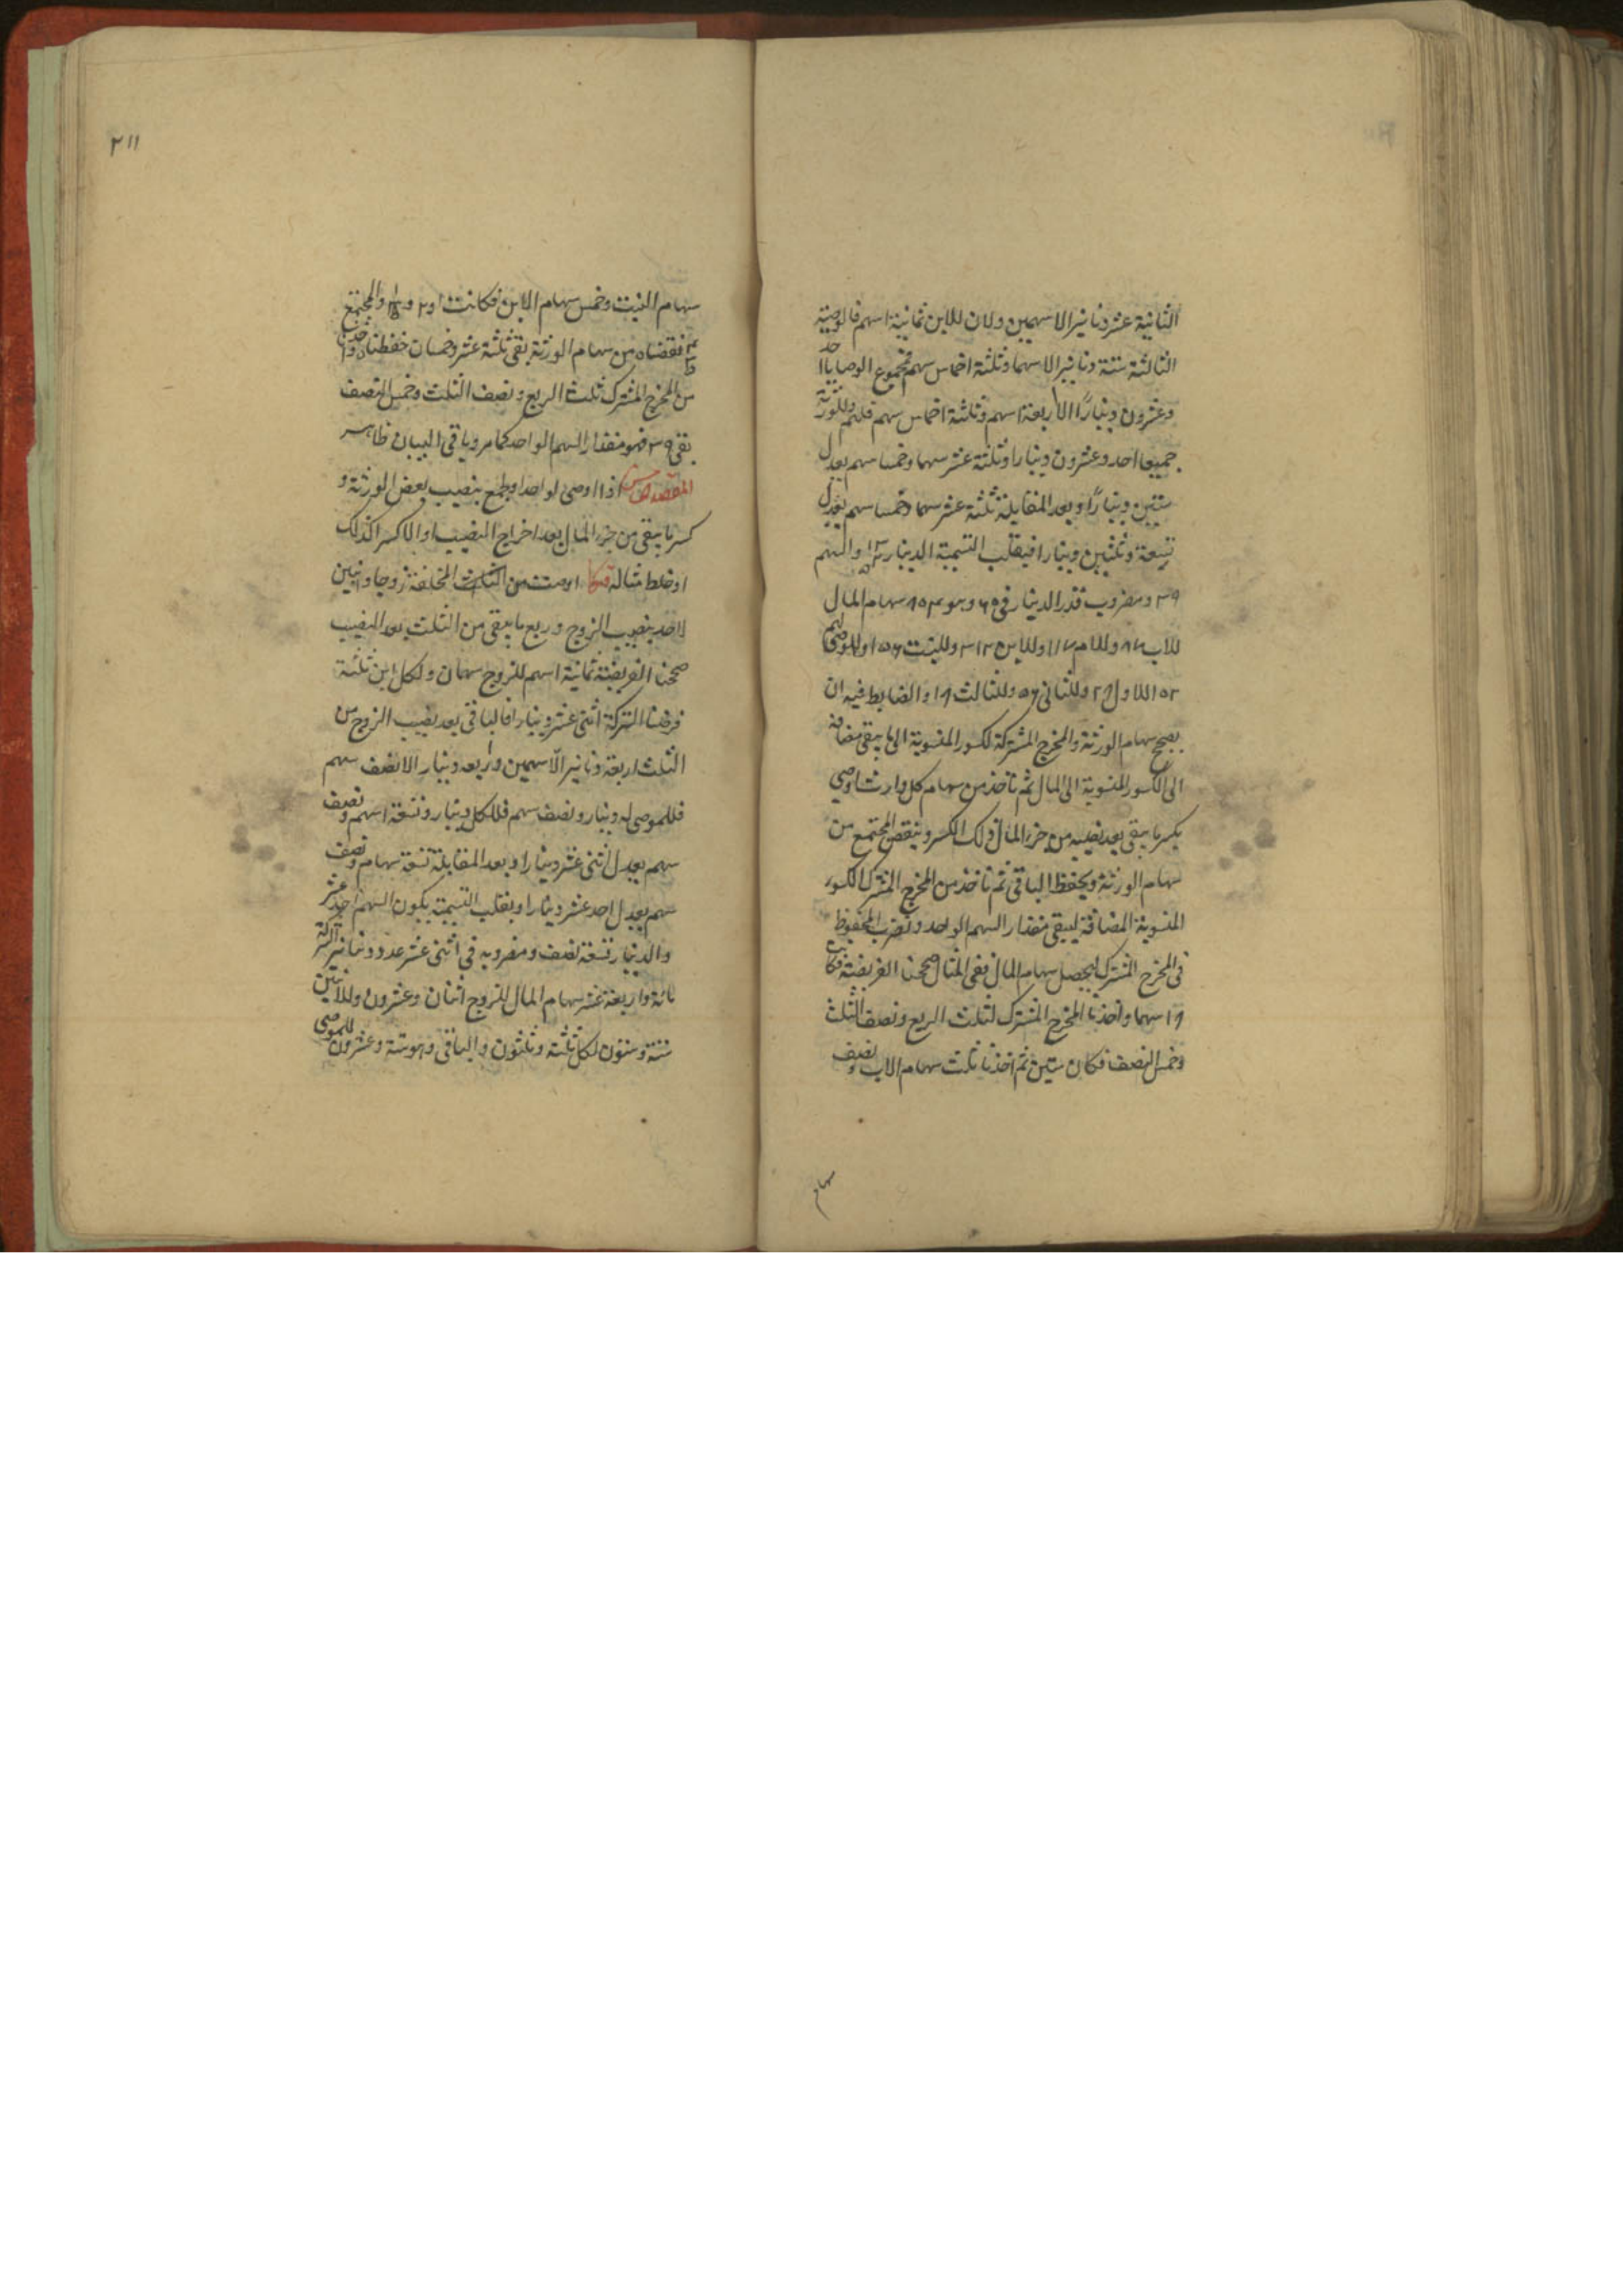 الثانية عشر دنانير الا سهمين ولان للابن ثمانية اسهم فالوصية
الثالثة ستة دنانير الا سهما وثلثة اخماس سهم فمجموع الوصايا احد
وعشرون دينارًا الا اربعة اسهم وثلثة اخماس سهم فلهم وللورثة
جميعا احد وعشرون دينارا وثلثة عشر سهما وخمسا سهم يعدل
ستين دينارًا وبعد المقابلة ثلثة عشر سهما وخمسا سهم يعدل
تسعة وثلثين دينارا فيقلب التسمية الدينار والسهم
٣٩ ومضروب قدر الدينار في ٦٠ وهو ٨٠٤ سهام المال
للاب وللام ١١٧ وللابن ٣١٢ وللبنت ١٥٦ وللموصى لهم
للاول وللثاني وللثالث والضابط فيه ان
يصحح سهام الورثة والمخرج المشتركة لكسور المنسوبة الى ما يبقى مضافة
الى الكسور المنسوبة الى المال ثم تاخذ من سهام كل وارث اوصي
بكسر ما يبقى بعد نصيبه من جزء المال ذلك الكسر وينقص المجتمع من
سهام الورثة ويحفظ الباقي ثم تاخذ من المخرج المشترك الكسور
المنسوبة المضافة ليبقى مقدار السهم الواحد وتضرب المحفوظ
في المخرج المشترك ليحصل سهام المال ففي المثال صححنا الفريضة فكانت
١٨ سهما واخذنا المخرج المشترك لثلث الربع ونصف الثلث
وخمس النصف فكان ستين ثم اخذنا ثلث سهام الاب ونصف
سهام
٢١١
سهام البنت وخمس سهام الابن فكانت ١ و ٢ و والمجتمع
فنقصناه من سهام الورثة بقي ثلثة عشر وخمسان حفظناه واخذنا
من المخرج المشترك ثلث الربع ونصف الثلث وخمس النصف
بقي ٣٩ فهو مقدار السهم الواحد كما مر وباقي البيان ظاهر
المقصد الخامس اذا اوصى لواحد او لجمع بنصيب بعض الورثة و
كسر ما يبقى من جزء المال بعد اخراج النصيب او الا كسر كذلك
او خلط مثاله اوصت من الثلث المخلفة زوجا وابنين
لاحد بنصيب الزوج وربع ما يبقى من الثلث بعد النصيب
صححنا الفريضة ثمانية اسهم للزوج سهمان ولكل ابن ثلثة
فرضنا التركة اثنى عشر دينارا فالباقي بعد نصيب الزوج من
الثلث اربعة دنانير الا سهمين وربعه دينار الا نصف سهم
فللموصى له دينار ونصف سهم فللكل دينار وتسعة اسهم ونصف
سهم يعدل اثنى عشر دينارا وبعد المقابلة تسعة سهام ونصف
سهم يعدل احد عشر دينارا وبقلب التسمية يكون السهم احد عشر
والدينار تسعة ونصف ومضروبه في اثنى عشر عدد دنانير التركة
مائة واربعة عشر سهام المال للزوج اثنان وعشرون وللابنين
ستة وستون لكل ثلثة وثلثون والباقي وهو ستة وعشرون للموصى